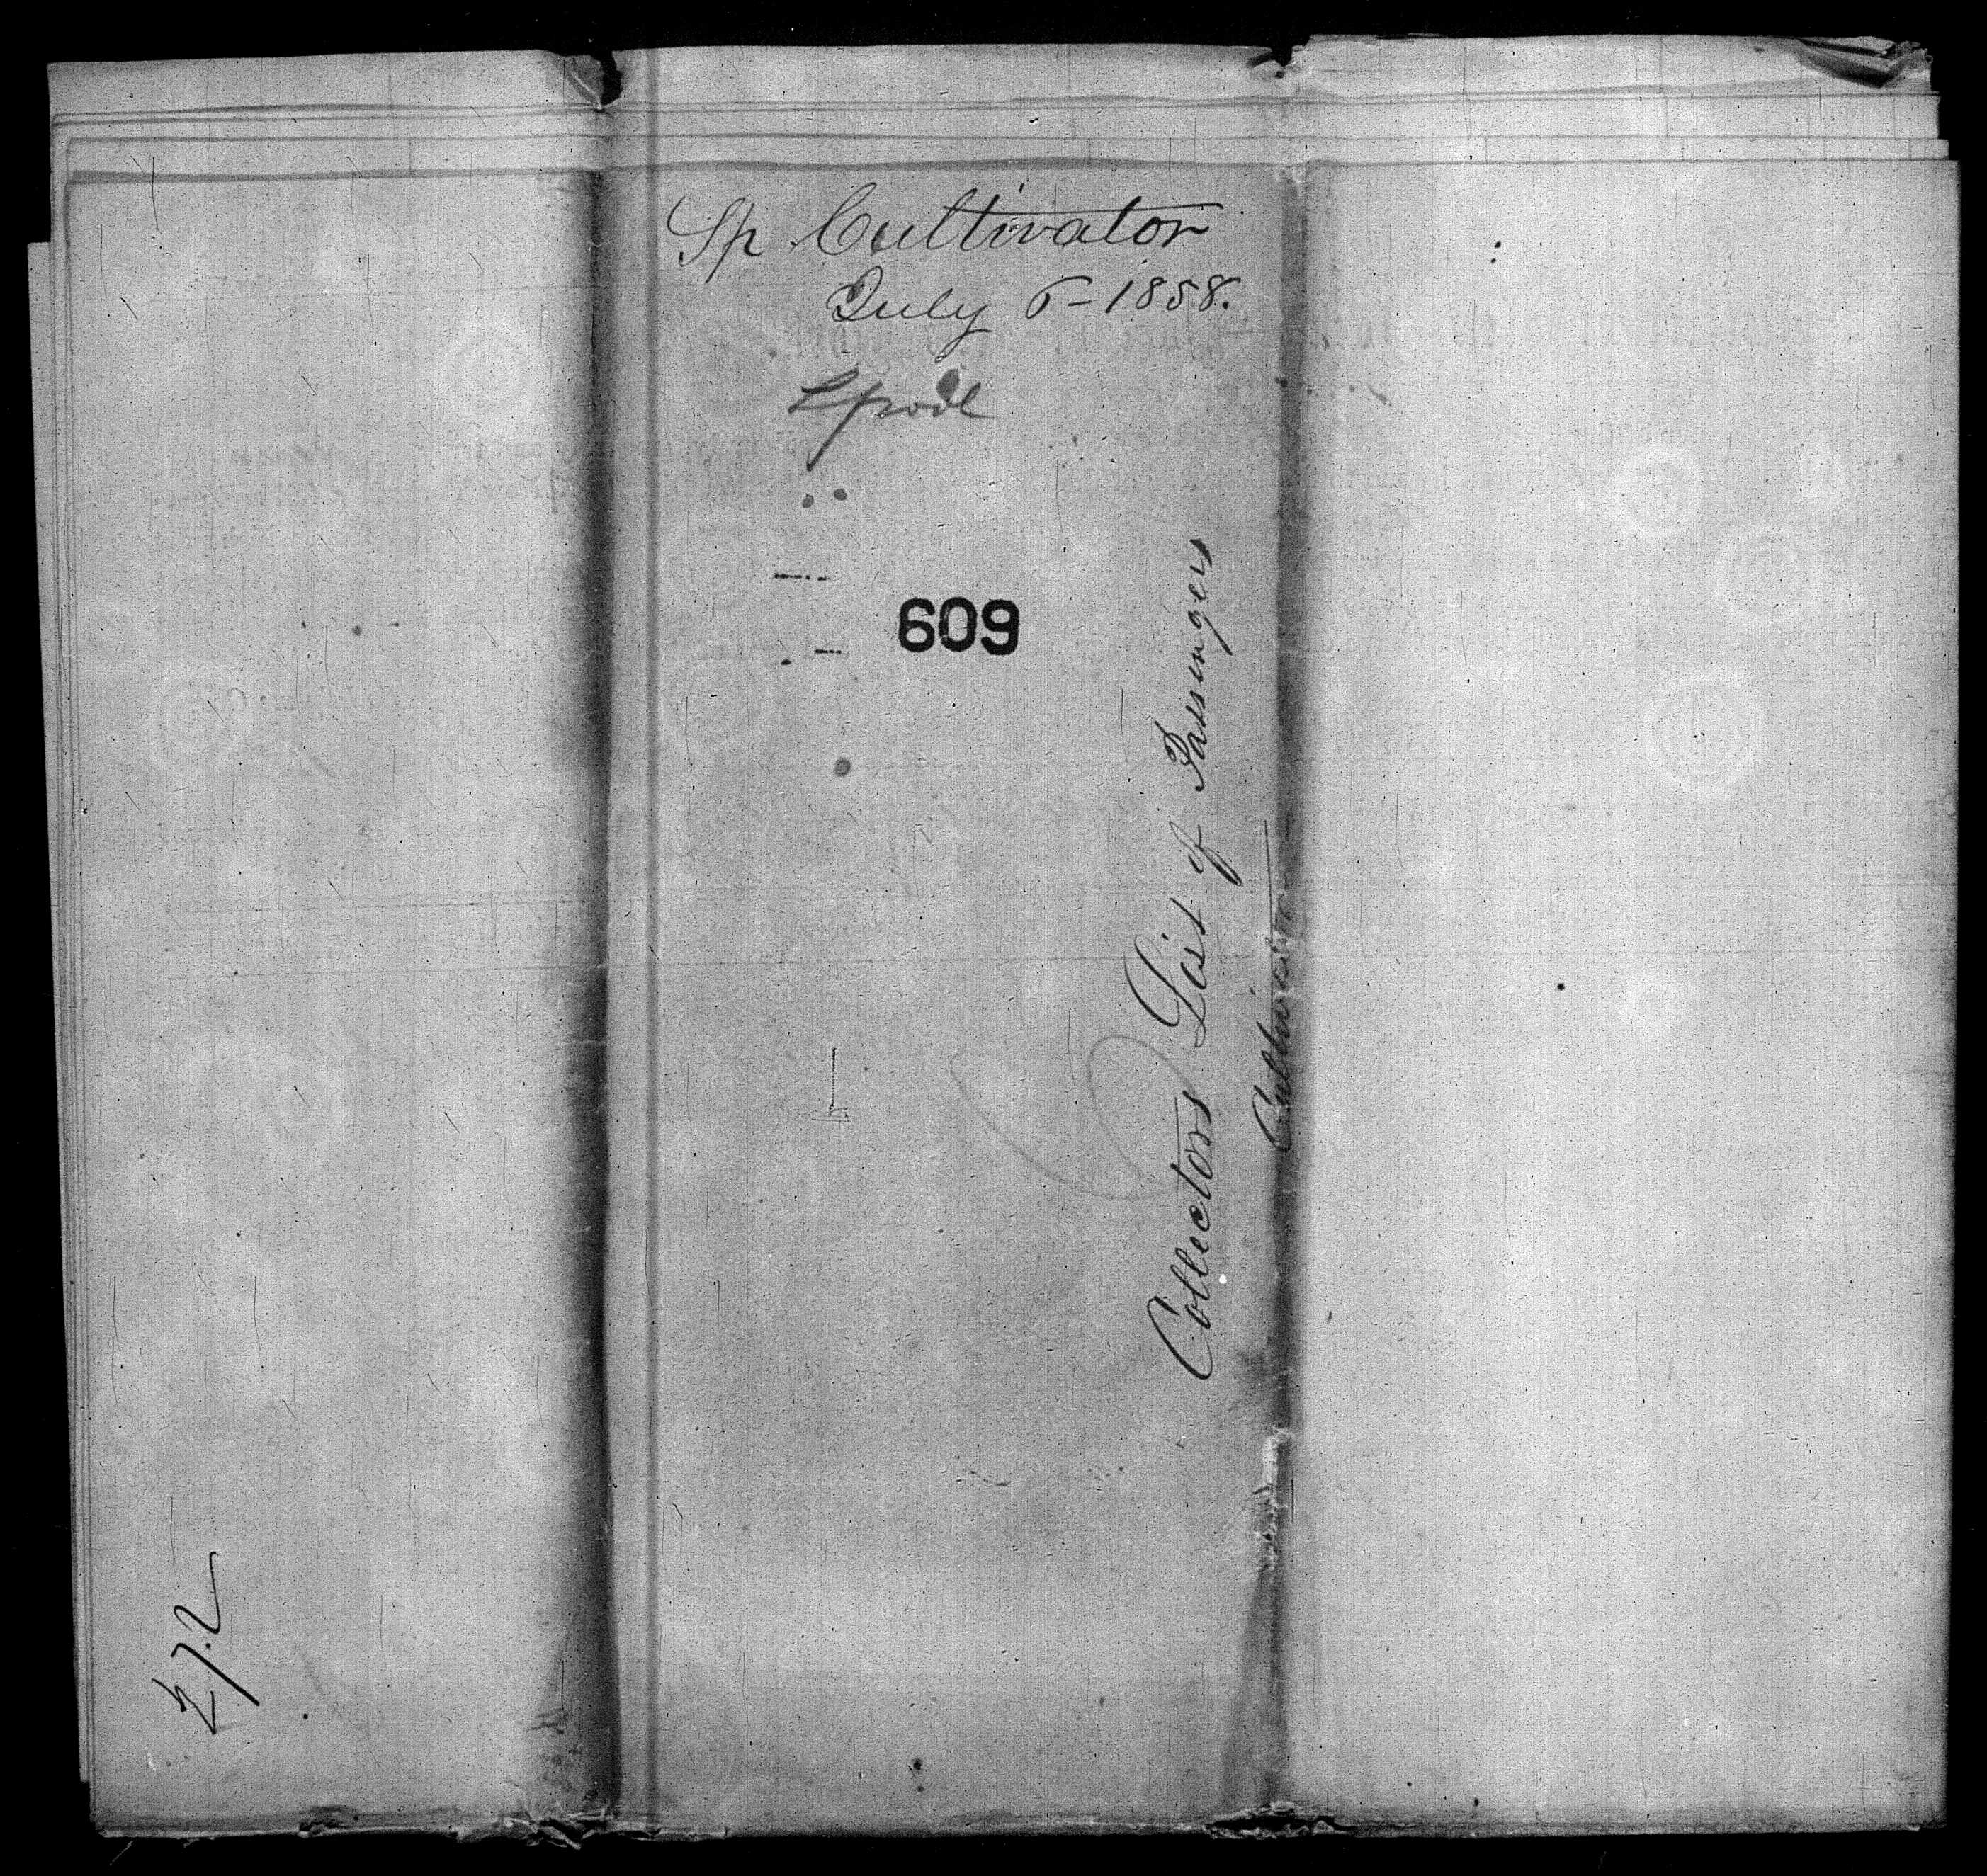 Sp Cultivator
July 6 - 1858.
Lpool
609
Collectors List of Passengers
Cultivator
272